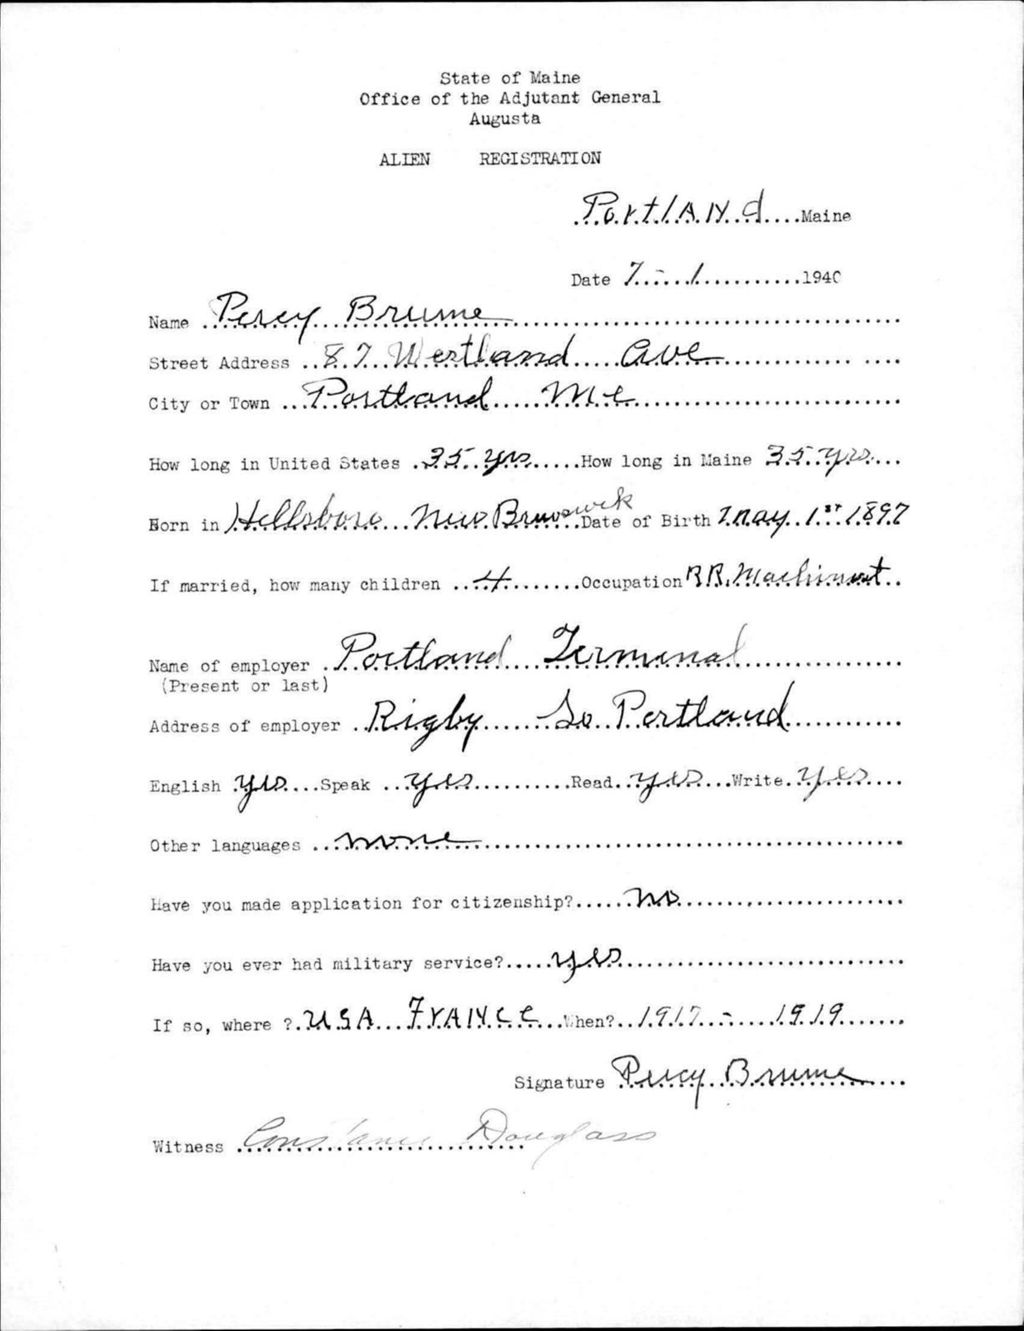 State of Maine
Office of the Adjutant General
Augusta
ALIEN REGISTRATION
Portland Maine
Date 7 - 1 1940
Name Percy Brume
Street Address 87 Westland Ave
City or Town Portland Me
How long in United States 35 yrs How long in Maine 35 yrs
Born in Hillsboro New Brunswick Date of Birth May 1st 1897
If married, how many children 4 Occupation RR. Machinist
Name of employer Portland Terminal
(Present or last)
Address of employer Rigby So Portland
English yes Speak yes Read yes Write yes
Other languages none
Have you made application for citizenship? no
Have you ever had military service? yes
If so, where ? USA FRANCE When? 1917 - 1919
Signature Percy Brume
Witness Constance Douglass